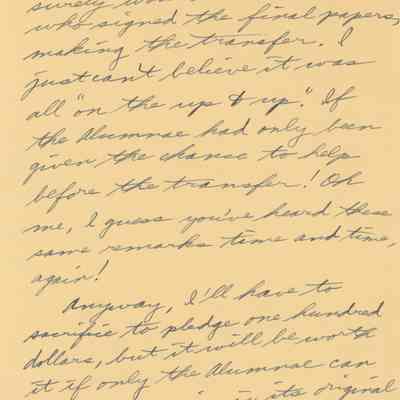 surely was
who signed the final papers,
making the transfer. I
just can't believe it was
all "on the up & up". If
the Alumnae had only been
given the chance to help
before the transfer! Oh
me, I guess you've heard these
same remarks time and time,
again!
Anyway, I'll have to
sacrifice to pledge one hundred
dollars, but it will be worth
it if only the Alumnae can
in its original